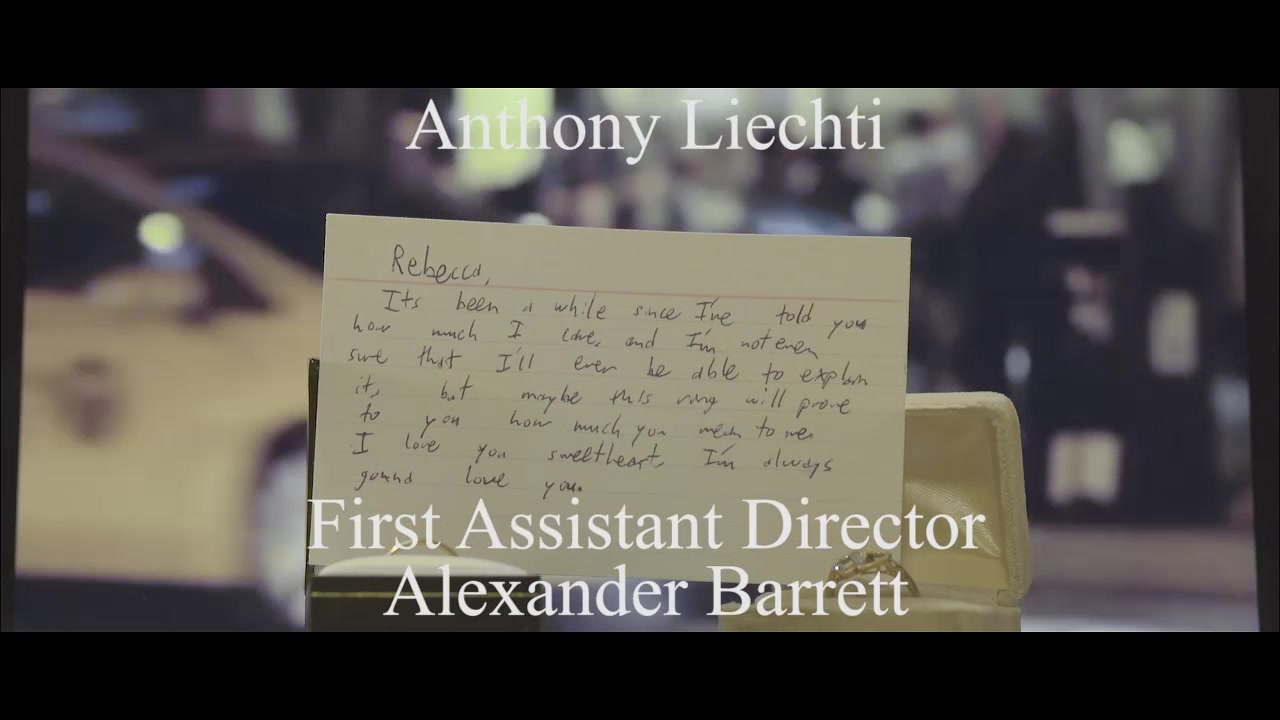 Anthony Liechti
Rebecca,
Its been a while since I've told you
how much I care, and I'm not even
sure that I'll ever be able to explain
it, but maybe this ring will prove
to you how much you mean to me.
I love you sweetheart, I'm always
gunna love you.
First Assistant Director
Alexander Barrett